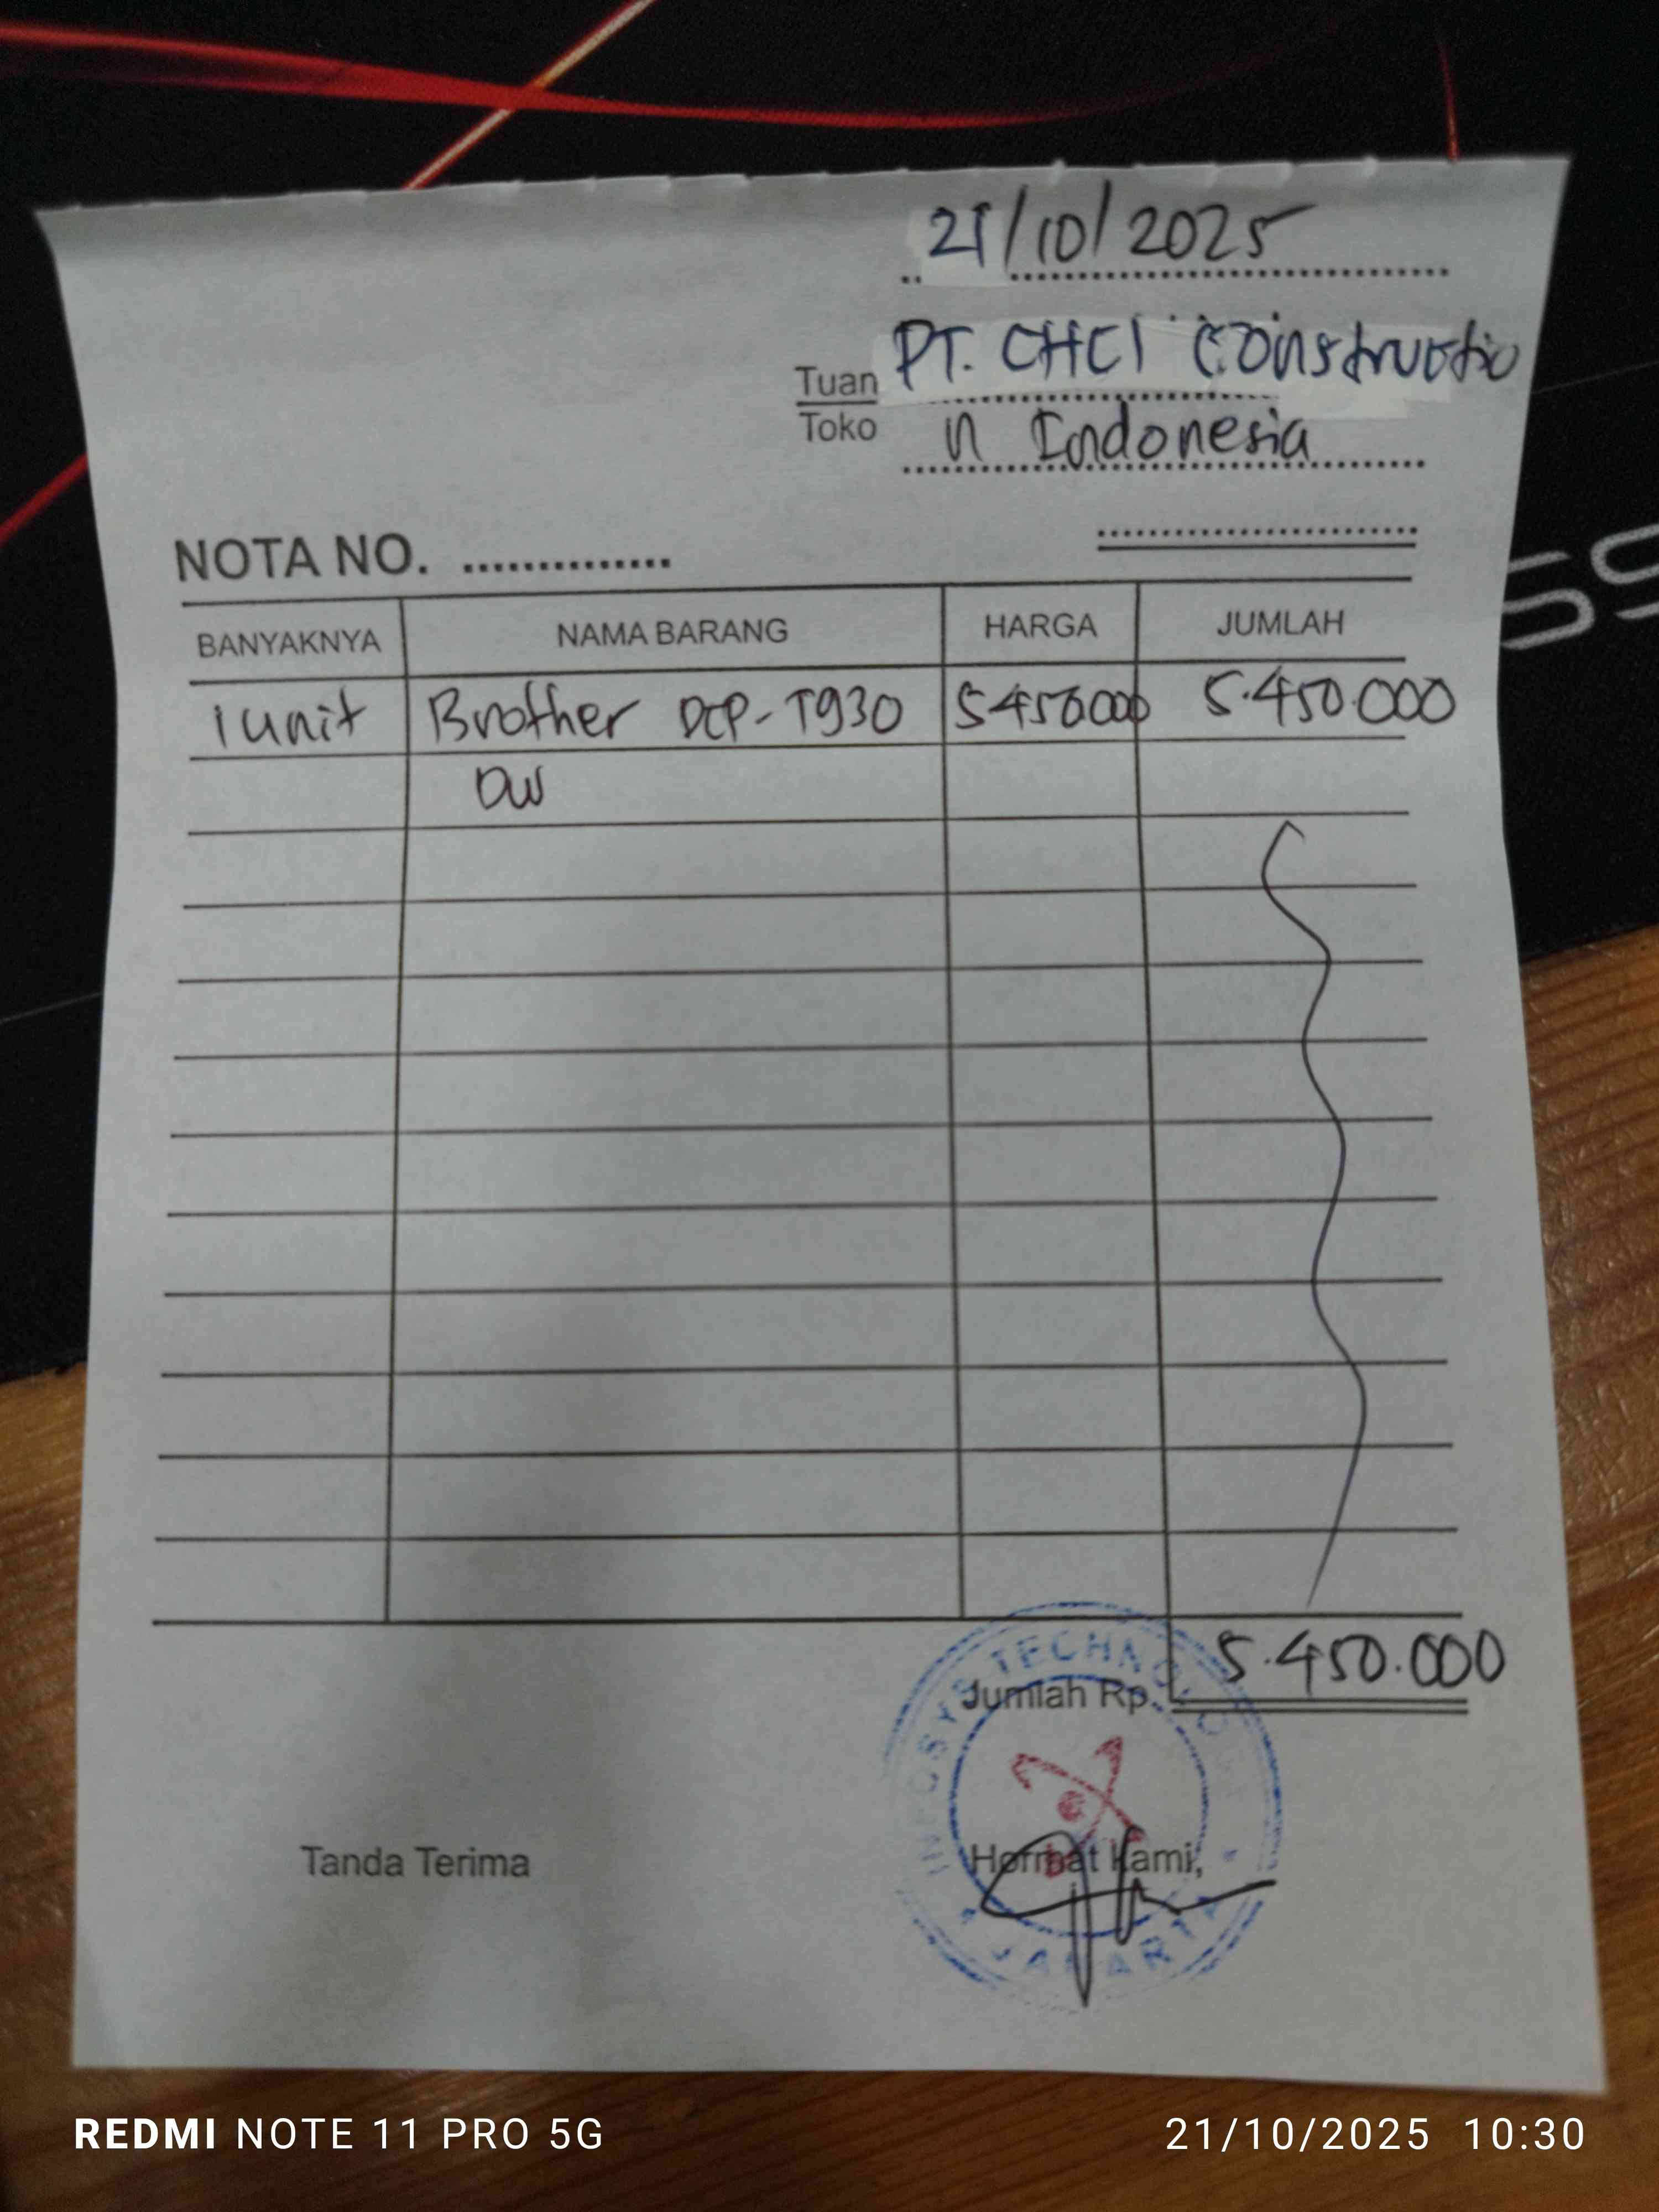 21/10/2025
Tuan PT. CHCI Constructio
Toko n Indonesia
NOTA NO.
BANYAKNYA NAMA BARANG HARGA JUMLAH
1 unit Brother DCP-T930 5.450.000 5.450.000
DW
Jumlah Rp. 5.450.000
INFOSYS TECHNO
JAKARTA
Tanda Terima Hormat Kami,
REDMI NOTE 11 PRO 5G 21/10/2025 10:30